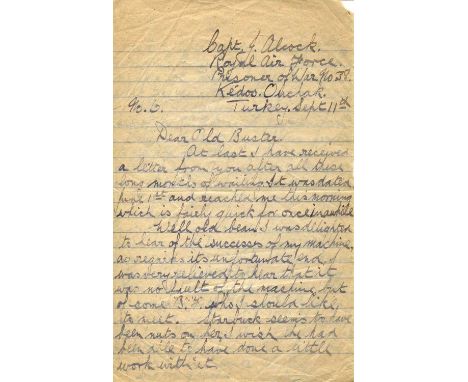 Capt. J. Alcock.
Royal Air Force.
Prisoner of War No
Kedos. Ouchak.
No. 6. Turkey. Sept 11th
Dear Old Buster
At last I have received
a letter from you after all these
long months of waiting. It was dated
1st and reached me this morning
which is fairly quick for once in a while
Well old bean I was delighted
to hear of the successes of my machine,
as regards its unfortunate end, I
was very relieved to hear that it
was no fault of the machine, but
of some who I should like
to meet. Starbuck seems to have
been nuts on her, I wish he had
been able to have done a little
work with it